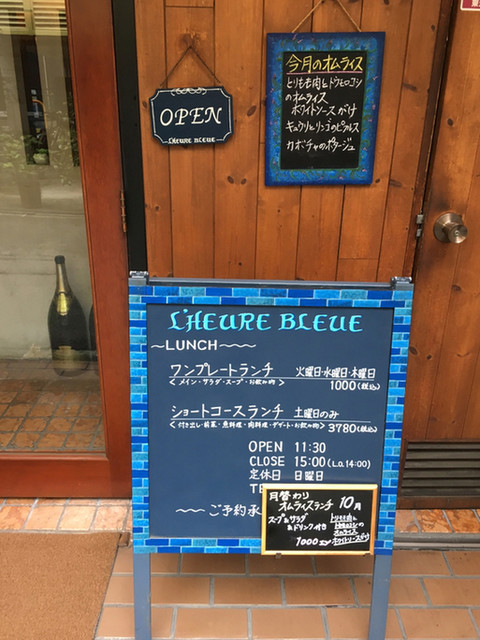 OPEN
L'HEURE BLEUE
今月のオムライス
とりもも肉とトウモロコシ
のオムライス
ホワイトソースがけ
キュウリとリンゴのピクルス
カボチャのポタージュ
L'HEURE BLEUE
〜LUNCH〜
ワンプレートランチ 火曜日・水曜日・木曜日
＜メイン・サラダ・スープ・お飲み物＞ 1000(税込)
ショートコースランチ 土曜日のみ
＜付き出し・前菜・魚料理・肉料理・デザート・お飲み物＞ 3780(税込)
OPEN 11:30
CLOSE 15:00(L.O.14:00)
定休日 日曜日
TE
〜ご予約承
月替わり
オムライスランチ 10月
スープ&サラダ
&ドリンク付き
とりもも肉と
トウモロコシの
オムライス
ホワイトソースがけ
1000